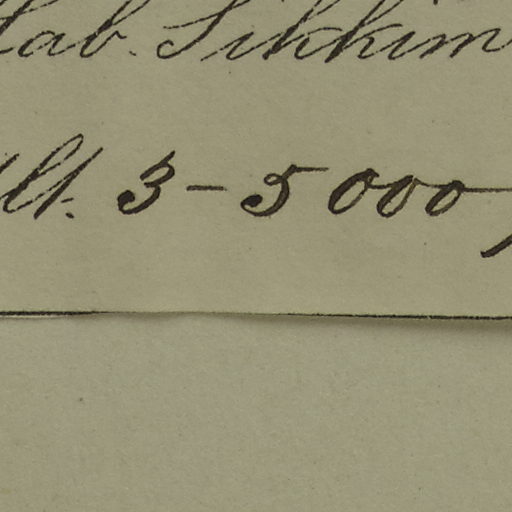 Hab. Sikkim
Alt. 3-5000